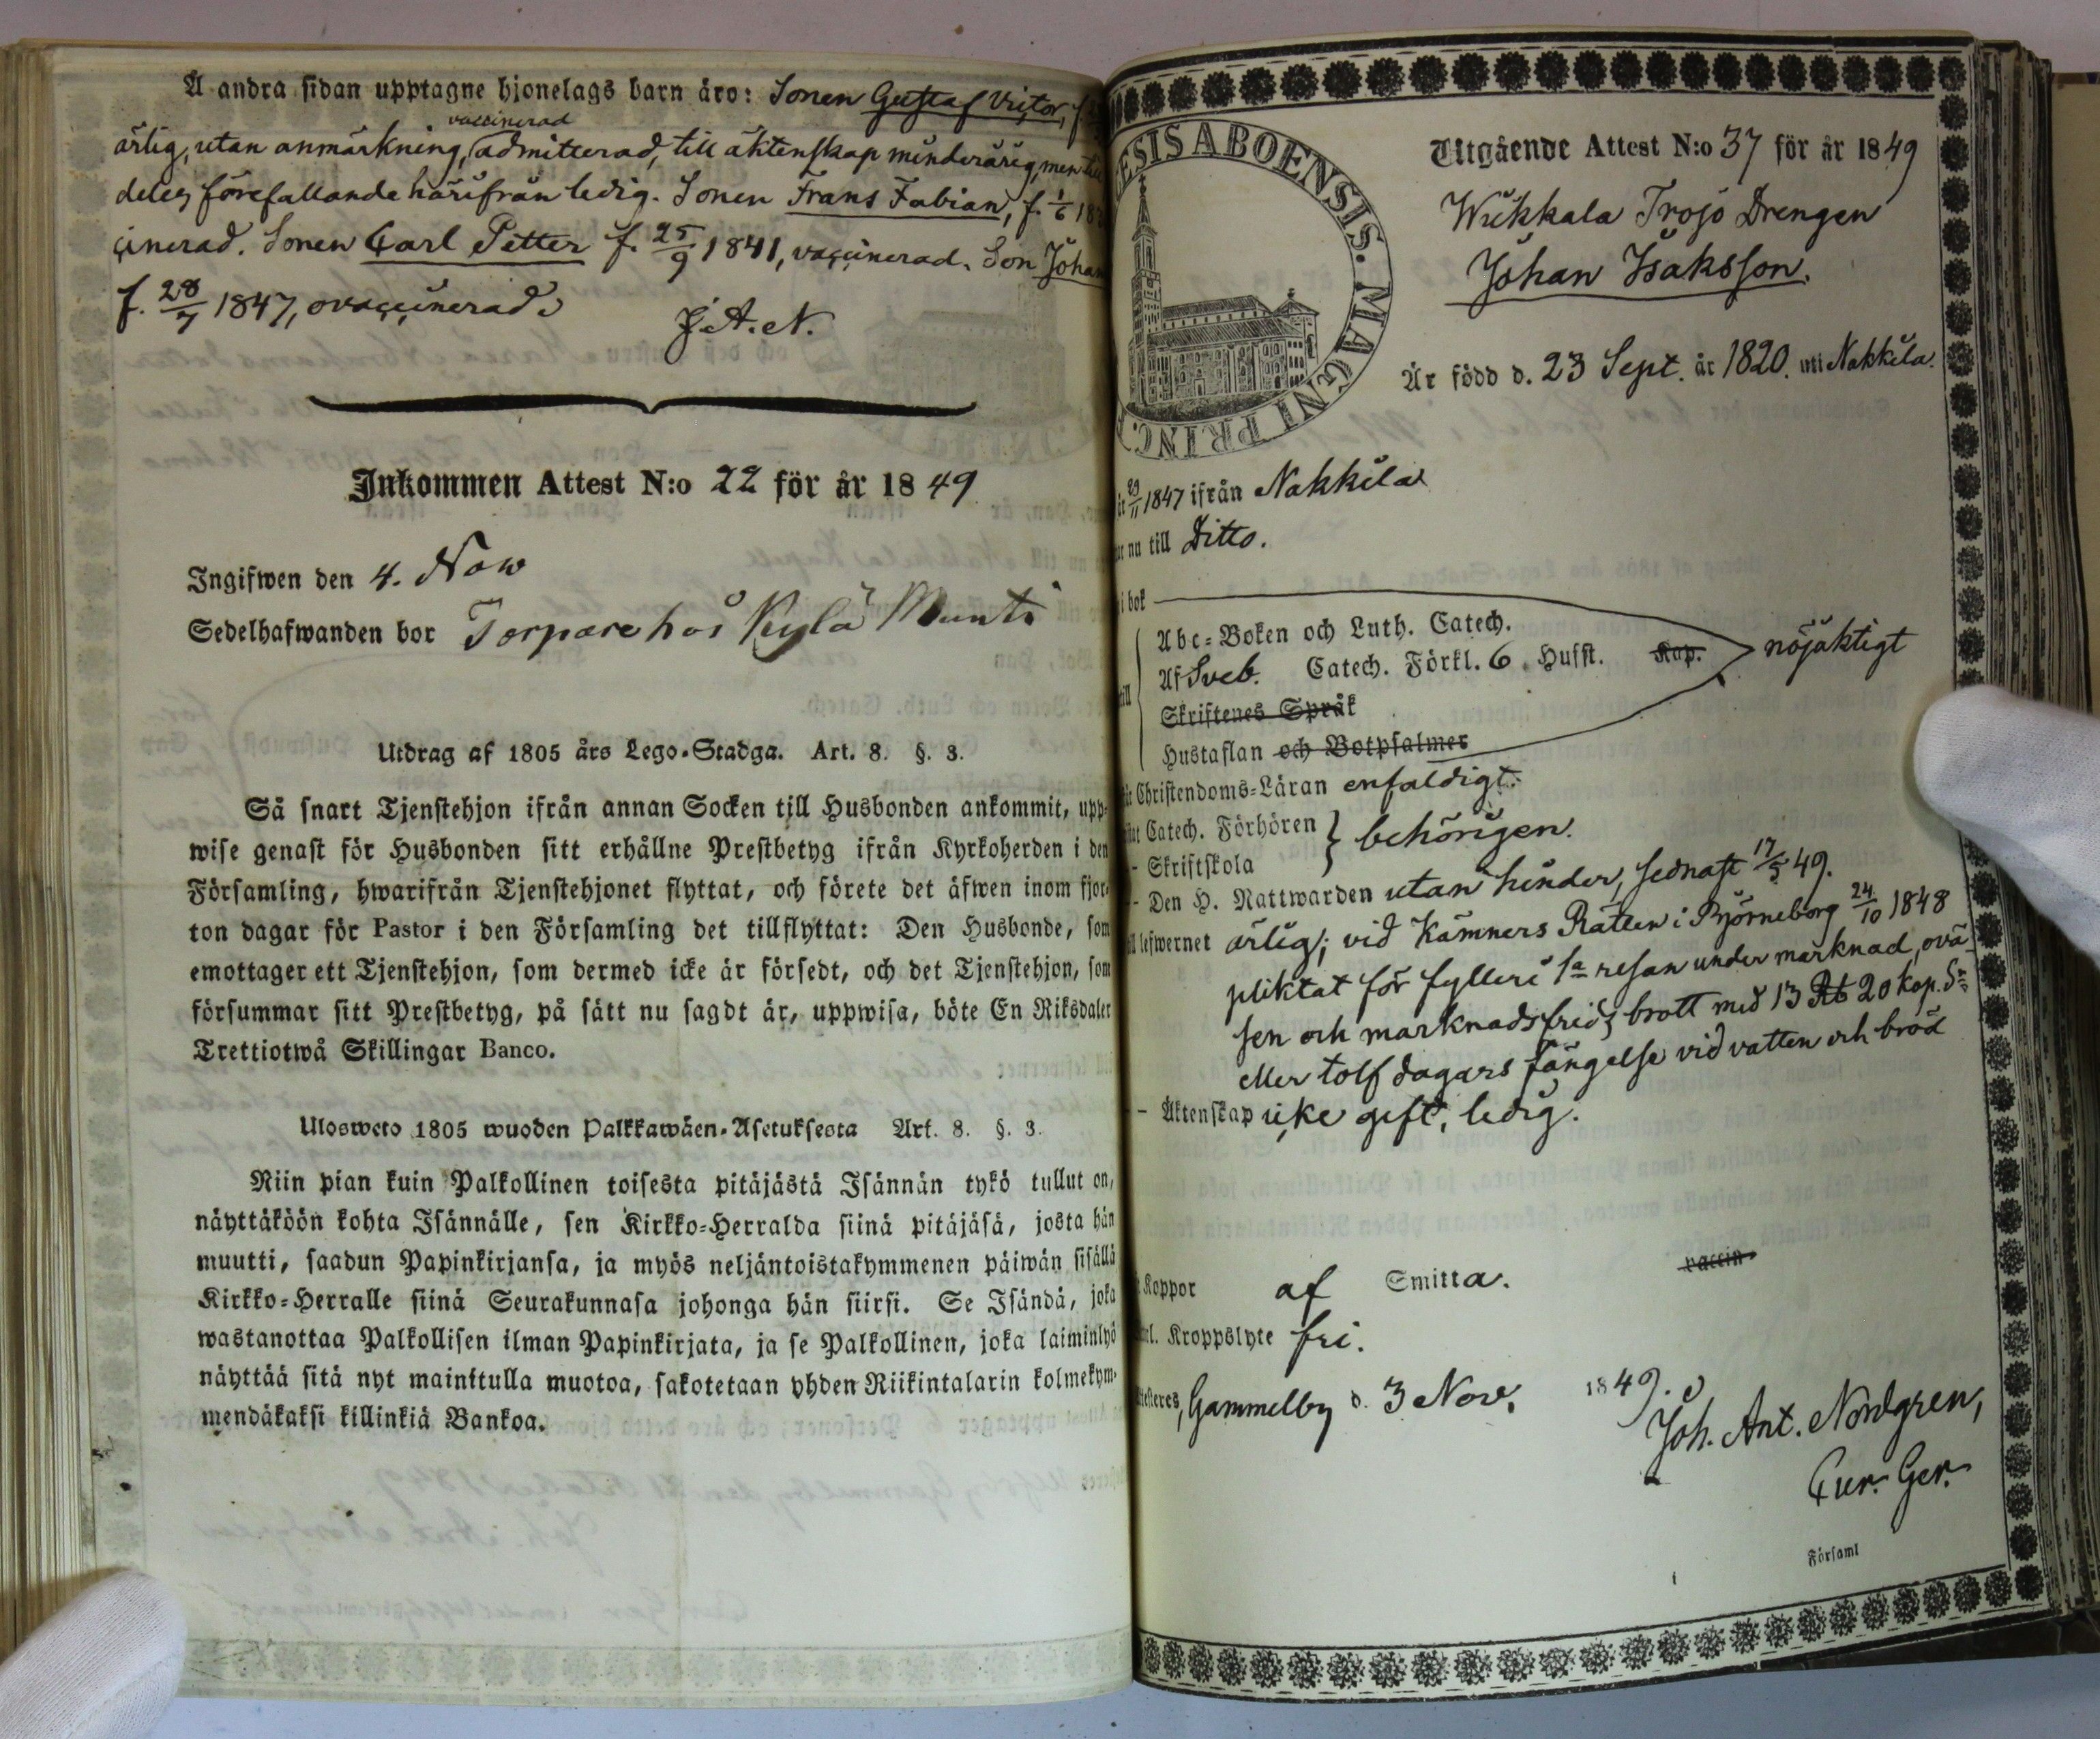 Å andra sidan upptagne hjonelags barn äro: Sonen Gustaf Victor, f.
vaccinerad
ärlig, utan anmärkning, admitterad, till äktenskap minderårig, men till
deles förefallande härifrån ledig. Sonen Frans Fabian, f. 1/6 18
cinerad. Sonen Carl Petter f. 25/9 1841, vaccinerad. Son Johan
f. 28/7 1847, ovaccinerad.
J. A. N.
Inkommen Attest N:o 22 för år 1849
Ingifwen den 4. Nov
Sedelhafwanden bor Torpare hos Kylä Munti
Utdrag af 1805 års Lego-Stadga. Art. 8. §. 3.
Så snart Tjenstehjon ifrån annan Socken till Husbonden ankommit, upp-
wise genast för Husbonden sitt erhållne Prestbetyg ifrån Kyrkoherden i den
Församling, hwarifrån Tjenstehjonet flyttat, och förete det äfwen inom fjor-
ton dagar för Pastor i den Församling det tillflyttat: Den Husbonde, som
emottager ett Tjenstehjon, som dermed icke är försedt, och det Tjenstehjon, som
försummar sitt Prestbetyg, på sätt nu sagdt är, uppwisa, böte En Riksdaler
Trettiotwå Skillingar Banco.
Ulosweto 1805 wuoden Palkkawäen-Asetuksesta Art. 8. §. 3.
Niin pian kuin Palkollinen toisesta pitäjästä Isännän tykö tullut on,
näyttäköön kohta Isännälle, sen Kirkko-Herralda siinä pitäjäsä, josta hän
muutti, saadun Papinkirjansa, ja myös neljäntoistakymmenen päiwän sisällä
Kirkko-Herralle siinä Seurakunnasa johonga hän siirsi. Se Isändä, joka
wastanottaa Palkollisen ilman Papinkirjata, ja se Palkollinen, joka laiminlyö
näyttää sitä nyt mainitulla muotoa, sakotetaan yhden Riikintalarin kolmekym-
mendäkaksi killinkiä Bankoa.
ESIS ABOENSIS. MAGNI PRINC.
Utgående Attest N:o 37 för år 1849
Wiikkala Trojo Drengen
Johan Isaksson.
Är född d. 23 Sept. år 1820. uti Nakkila.
29/11 1847 ifrån Nakkila
nu till Ditto.
i bok
Abc-Boken och Luth. Catech.
Af Sveb. Catech. Förkl. 6 Husst. Kap. nöjaktigt
Skriftenes Språk
Hustaflan och Botpsalmer
Christendoms-Läran enfaldigt.
Catech. Förhören } behörigen.
- Skriftskola
- Den H. Nattwarden utan hinder, sednast 17/5 49.
lefwernet ärlig; vid Kämners Rätten i Björneborg 24/10 1848
pliktat för fylleri 1a resan under marknad, ovä-
sen och marknadsfrids brott med 13 Rb 20 kop. Sr
eller tolf dagars fängelse vid vatten och bröd
- Äktenskap icke gift, ledig.
Koppor af Smitta. vaccin
Kroppslyte fri.
Gammelby d. 3 Nov. 1849.
Joh. Ant. Nordgren,
Cur. Ger.
Församl